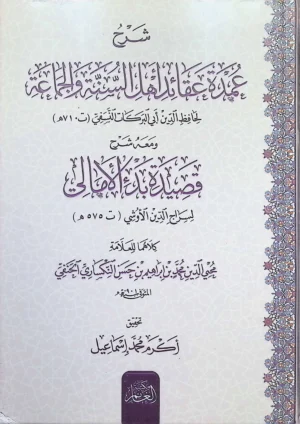 شرح
عمدة عقائد أهل السنة والجماعة
لحافظ الدين أبي البركات النسفي (ت ٧١٠ هـ)
ومعه شرح
قصيدة بدء الأمالي
لسراج الدين الأوشي (ت ٥٧٥ هـ)
كلاهما للعلامة
محيي الدين محمد بن إبراهيم بن حسن النكساري الحنفي
المتوفى هـ
تحقيق
أكرم محمد إسماعيل